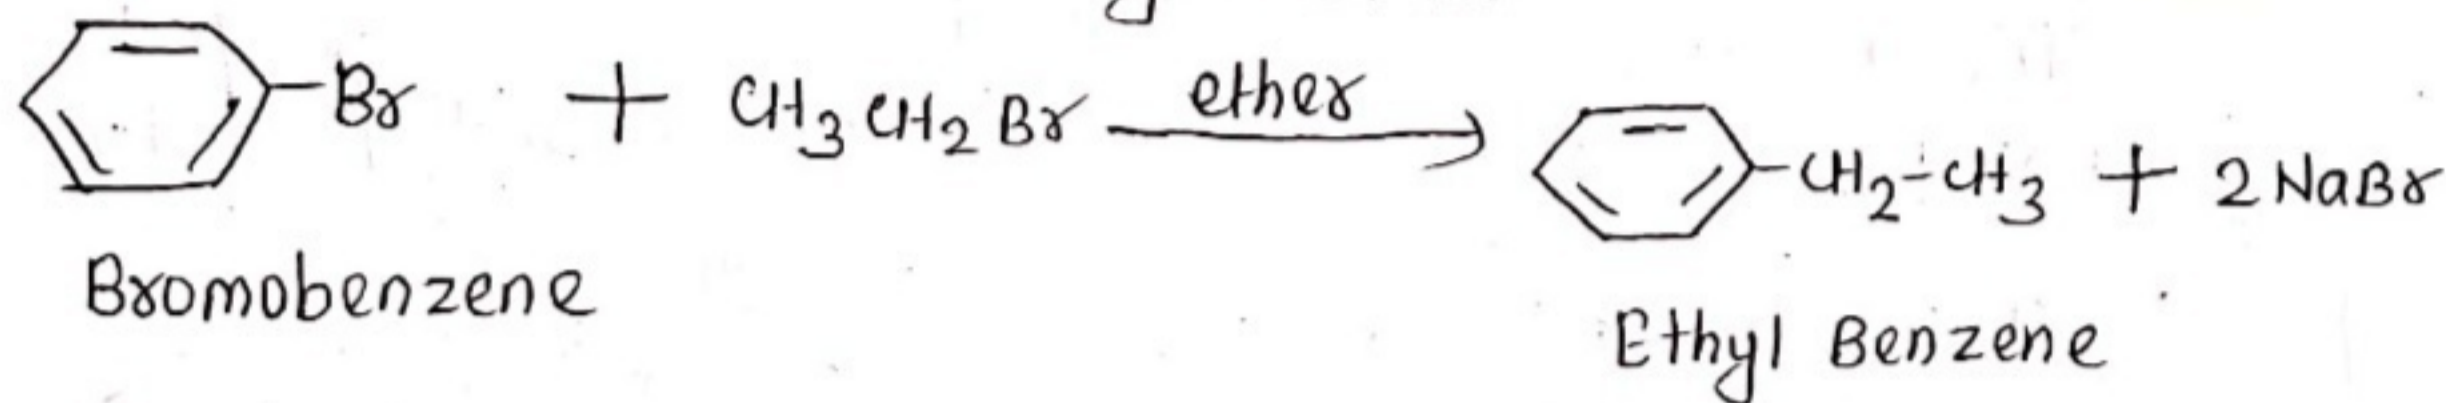 Br + CH3CH2Br ether CH2-CH3 + 2NaBr
Bromobenzene
Ethyl Benzene